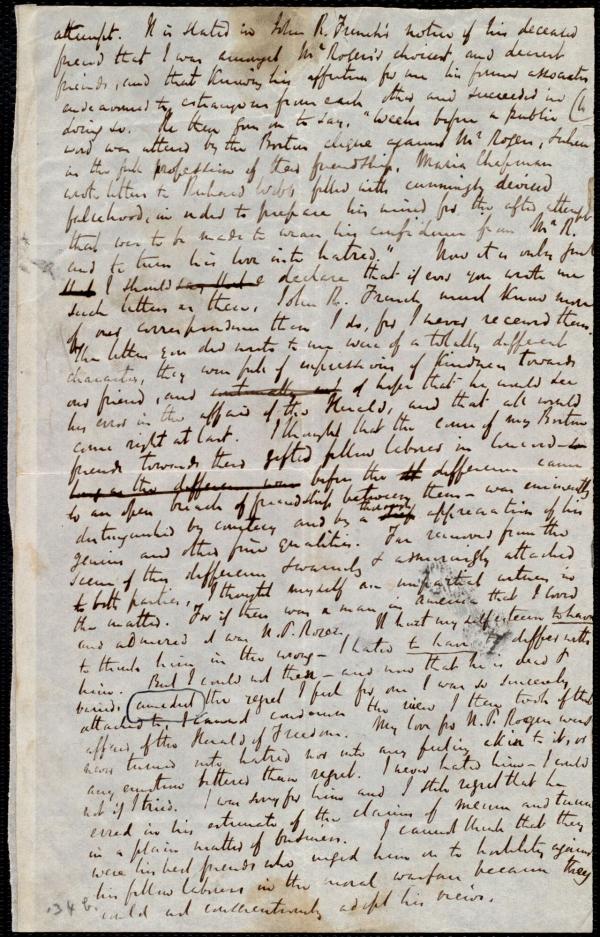 attempt. It is stated in John R. French's notice of his deceased
friend that I was amongst Mr Rogers's choicest and dearest
friends, and that knowing his affection for me his former associates
endeavoured to estrange us from each other and succeeded in
doing so. He then goes on to say, "Weeks before a public
word was uttered by the Boston clique against Mr Rogers, &
in the full profession of their friendship, Maria Chapman
wrote letters to Richard Webb filled with cunningly devised
falsehood, in order to prepare his mind for the after attempt
that was to be made to wean his confidence from Mr R.
and to turn his love into hatred." Now it is only just
that I should say that I declare that if ever you wrote me
such letters as these, John R. French must know more
of our correspondence than I do, for I never received them.
The letters you did write to me were of a totally different
character, they were full of expressions of kindness towards
our friend, and of hope that he would see
his error in the affair of the Herald, and that all would
come right at last. I thought that the course of my Boston
friends towards their gifted fellow laborer in Concord
long as the difference were before the difference came
to an open breach of friendship between them - was eminently
distinguished by courtesy and by a thorough appreciation of his
genius and other fine qualities. Far removed from the
scene of this difference & warmly & admiringly attached
to both parties, I thought myself an impartial witness in
the matter. For if there was a man in America that I loved
and admired it was N.P. Rogers. It hurt my self esteem to have
to think him in the wrong - I hated to have to differ with
him. But I could not then - and now that he is dead &
buried, amidst the regret I feel for one I was so sincerely
attached to, I cannot condemn the view I then took of that
affair of the Herald of Freedom. My love for N.P. Rogers was
never turned into hatred nor into any feeling akin to it, or
any emotion bitterer than regret. I never hated him - I could
not if I tried. I was sorry for him and I still regret that he
erred in his estimate of the claims of meum and tuum
in a plain matter of business. I cannot think that they
were his best friends who urged him on to hostility against
his fellow laborers in the moral warfare because they
could not conscientiously adopt his views.